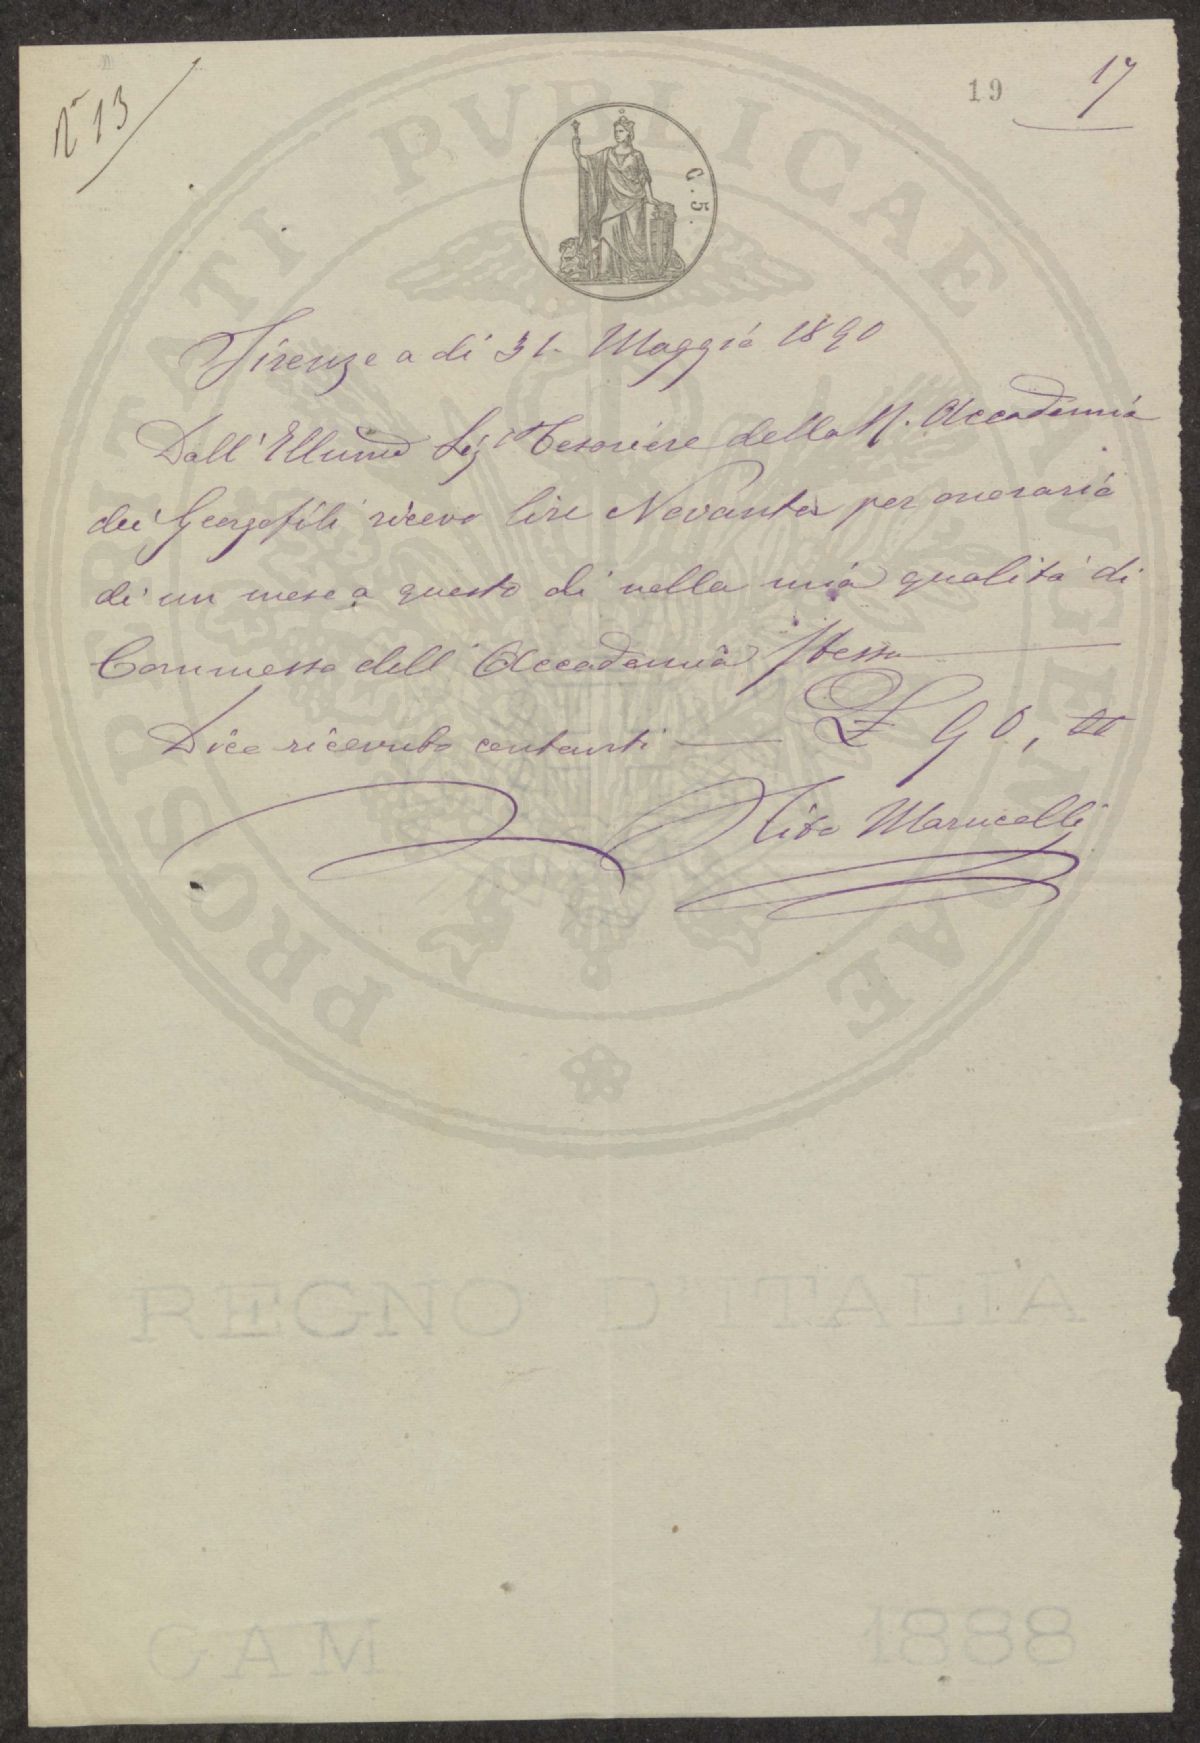 No 13
19
17
C. 5.
PROSPERITATI PVBLICAE AVGENDAE
Firenze a di 31. Maggio 1890
Dall' Illumo Sigr Tesoriere della R. Accademia
dei Georgofili ricevo lire Novanta per onorario
di un mese a questo di nella mia qualità di
Commesso dell' Accademia Stessa
Dico ricevuto contanti — £ 90, 00
Tito Marucelli
REGNO D'ITALIA
CAM 1888